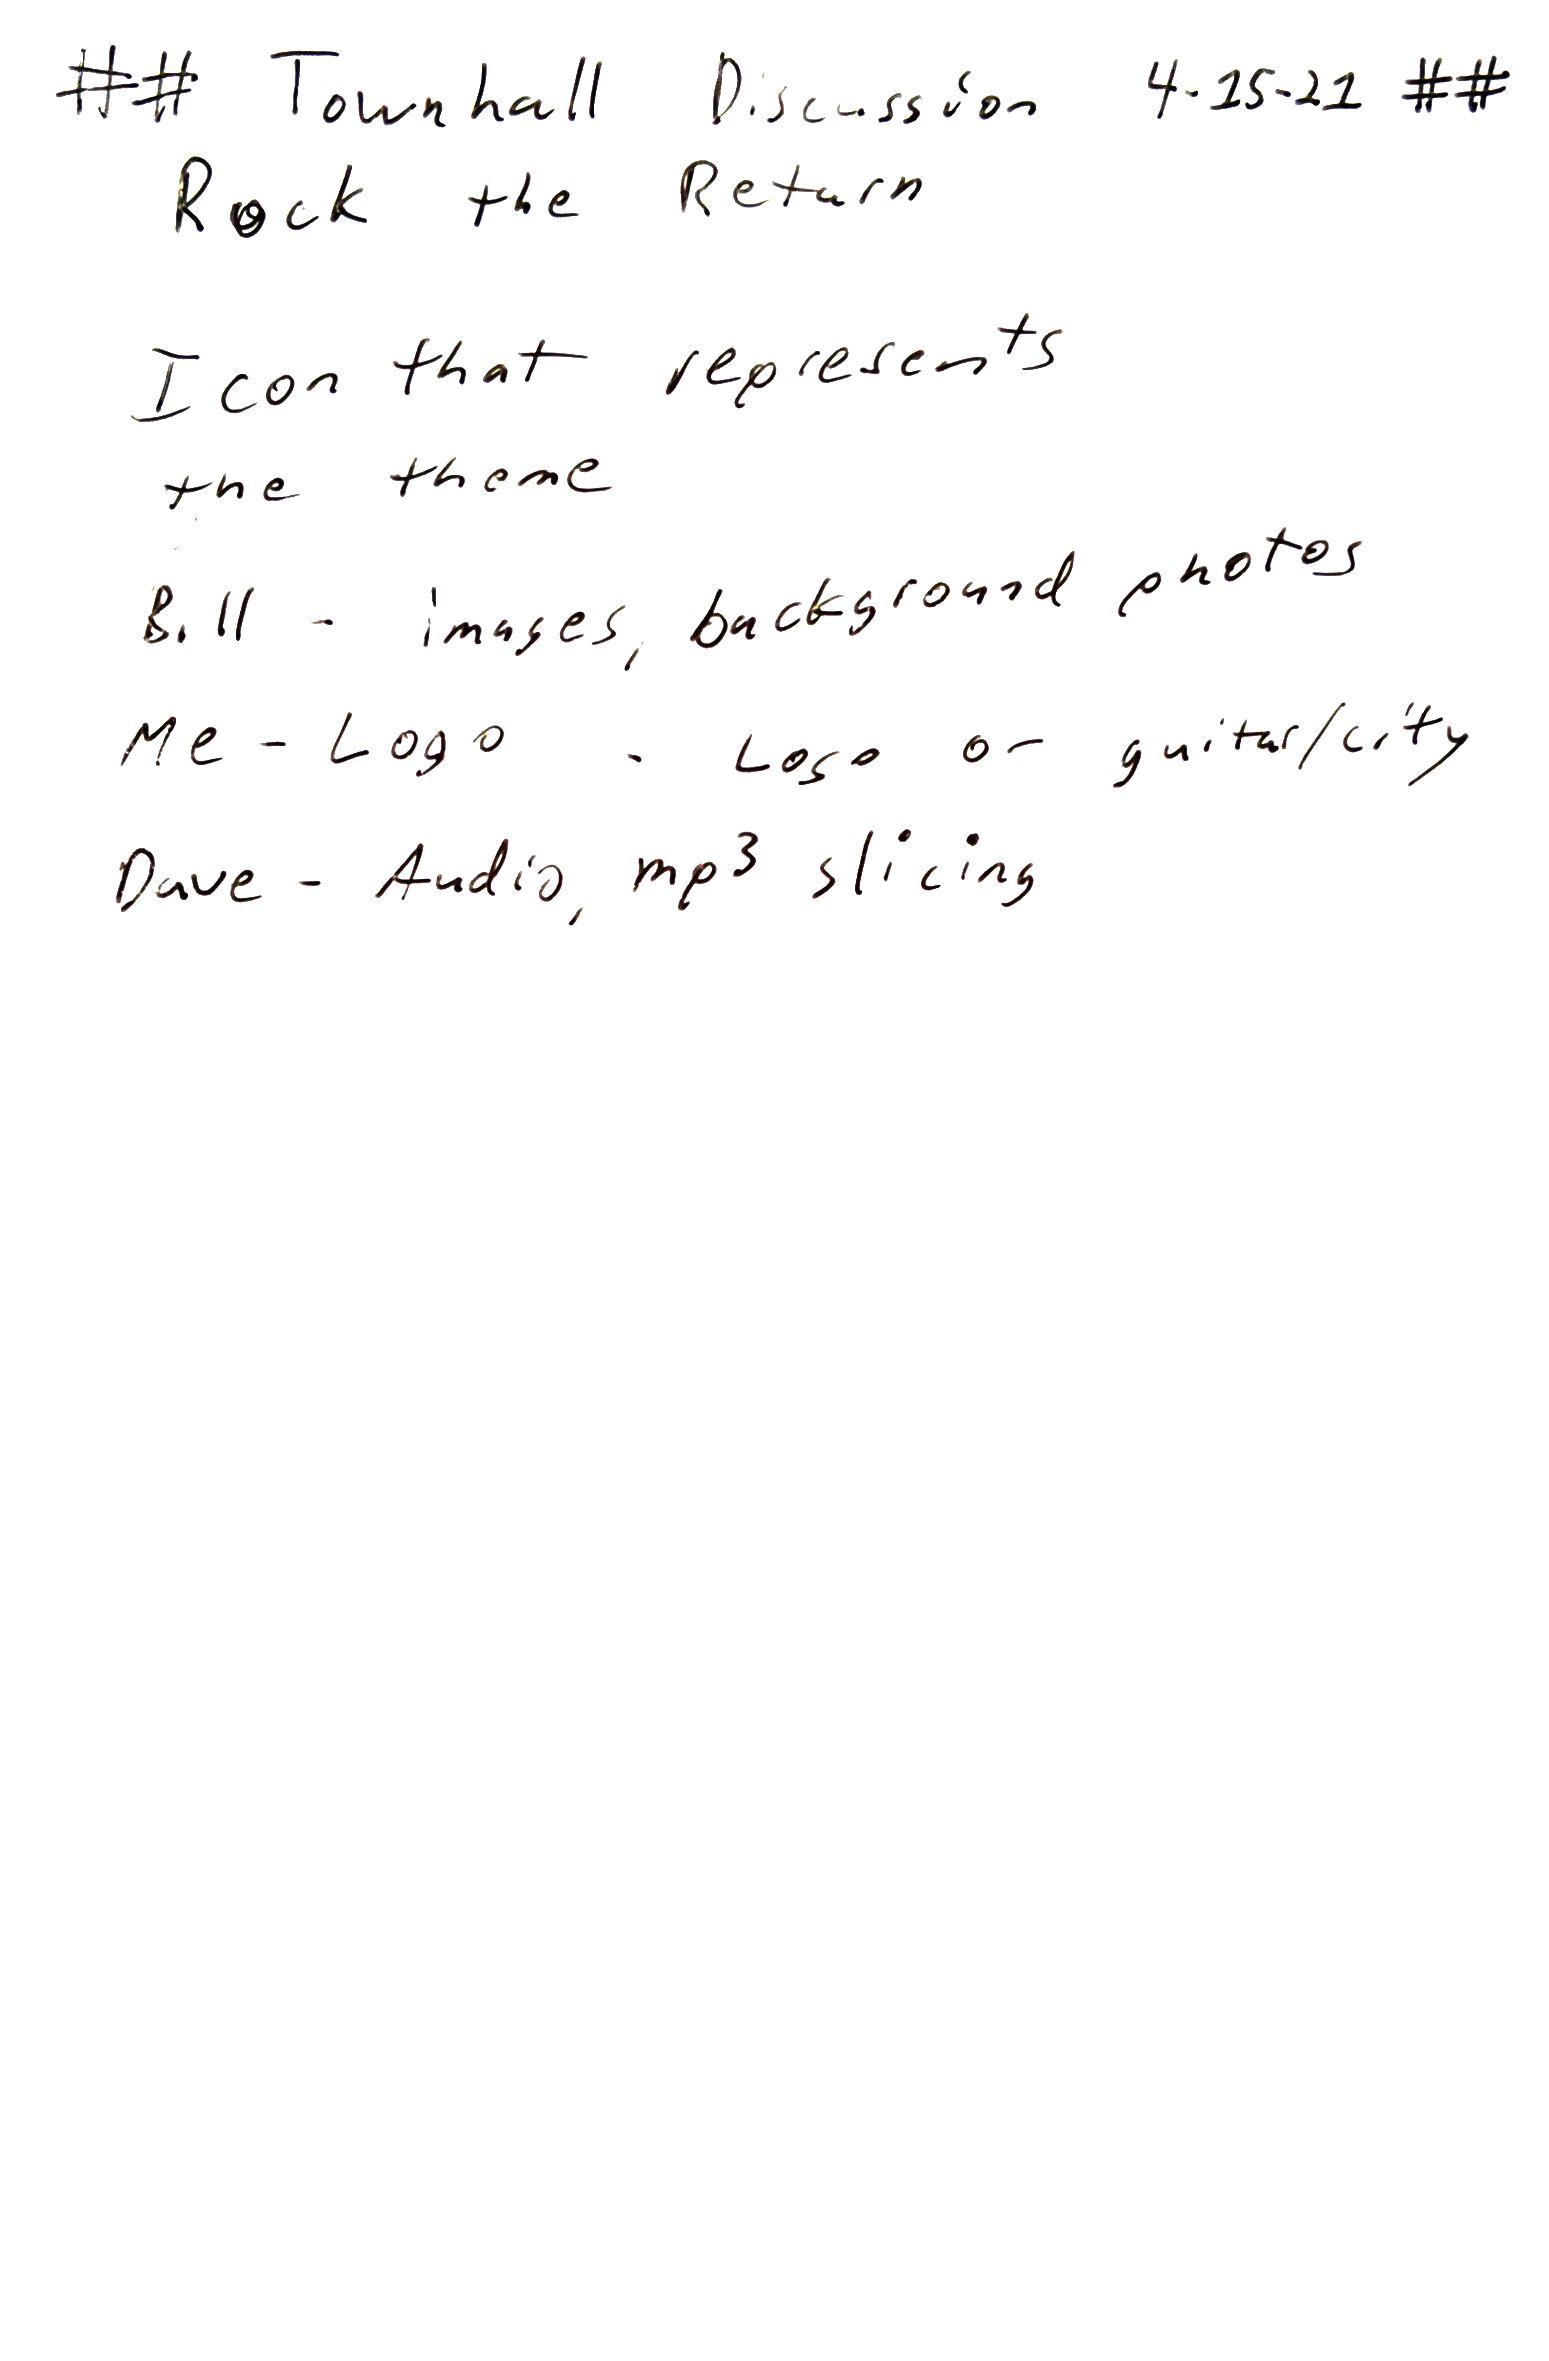 ## Townhall Discussion 4-15-21 ##
Rock the Return
Icon that represents
the theme
Bill - images, background photos
Me - Logo - Logo or guitar/city
Dave - Audio, mp3 slicing